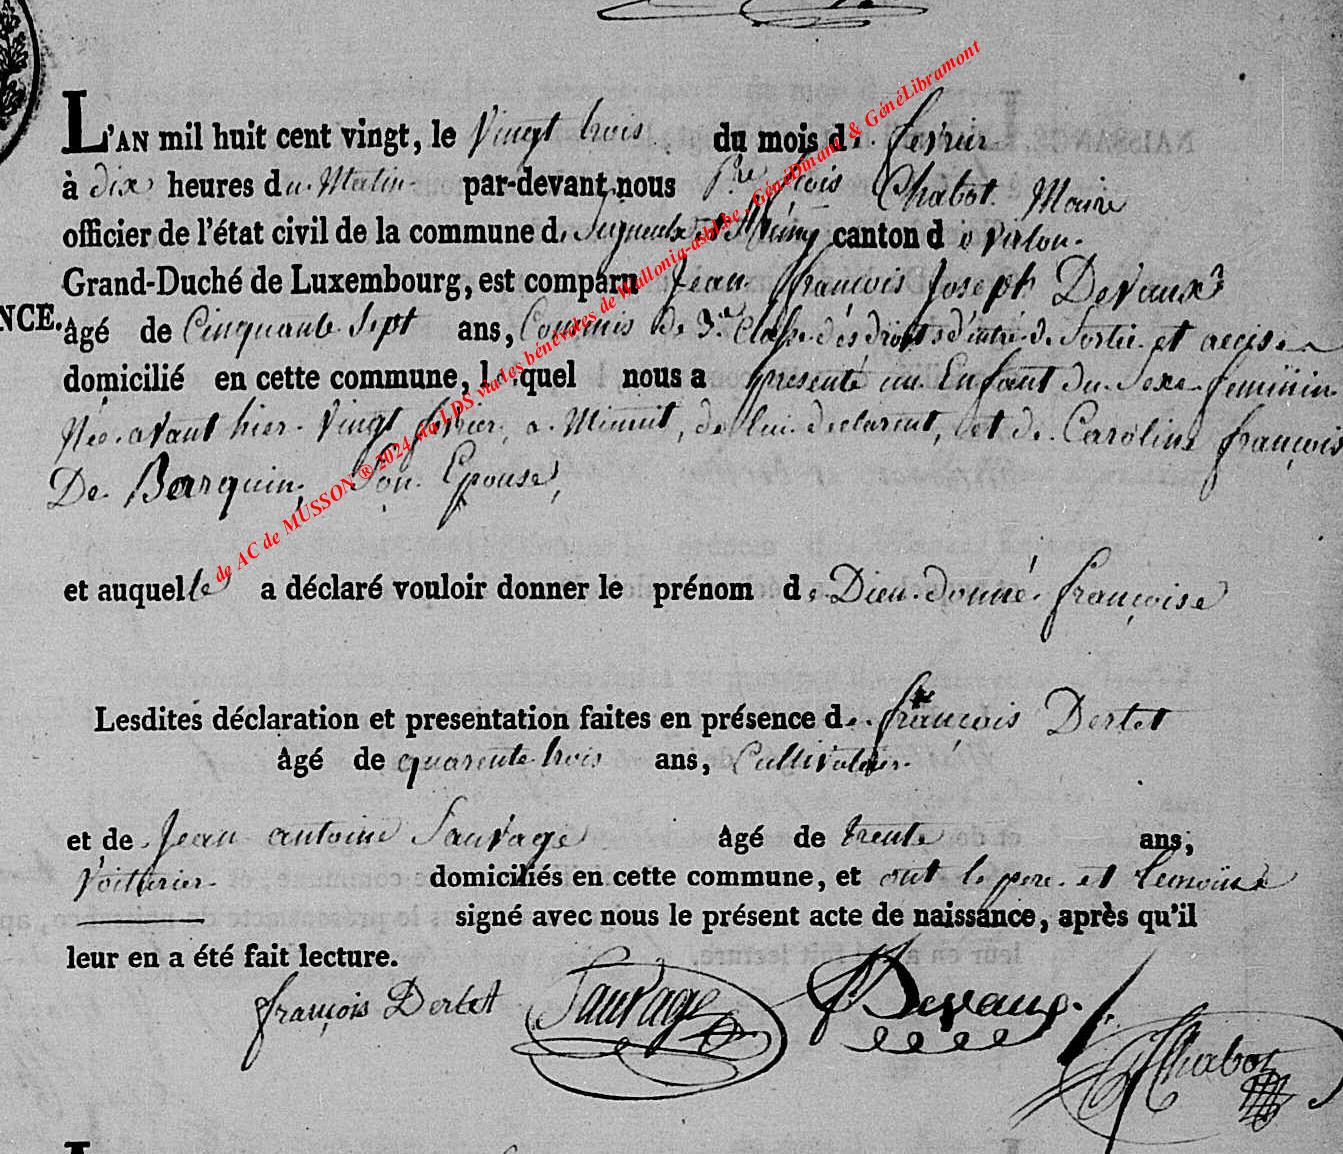 L'AN mil huit cent vingt, le vingt trois du mois de fevrier
à dix heures du Matin par-devant nous Pre Chabot Maire
officier de l'état civil de la commune de Signeulx et canton de Virton.
Grand-Duché de Luxembourg, est comparu Jean François Joseph Devaux
NCE.
âgé de Cinquante Sept ans, Commis de 3e Classe des droits d'entre de Sortie et accises
domicilié en cette commune, lequel nous a présenté un Enfant du Sexe feminin
Née avant hier Vingt fevrier, a Minuit, de lui declarent, et de Caroline François
De Barquin, Son Epouse,
et auquelle a déclaré vouloir donner le prénom de Dieu donné françoise
Lesdites déclaration et presentation faites en présence de françois Dertet
âgé de quarente trois ans, Cultivateur
et de Jean antoine Sauvage âgé de trente ans,
Voiturier domiciliés en cette commune, et ont le pere et temoins
signé avec nous le présent acte de naissance, après qu'il
leur en a été fait lecture.
françois Dertet Sauvage Devaux Chabot
de AC de MUSSON ® 2024 via LDS via les bénévoles de Wallonia-asbl.be, GénéDinant & GénéLibramont